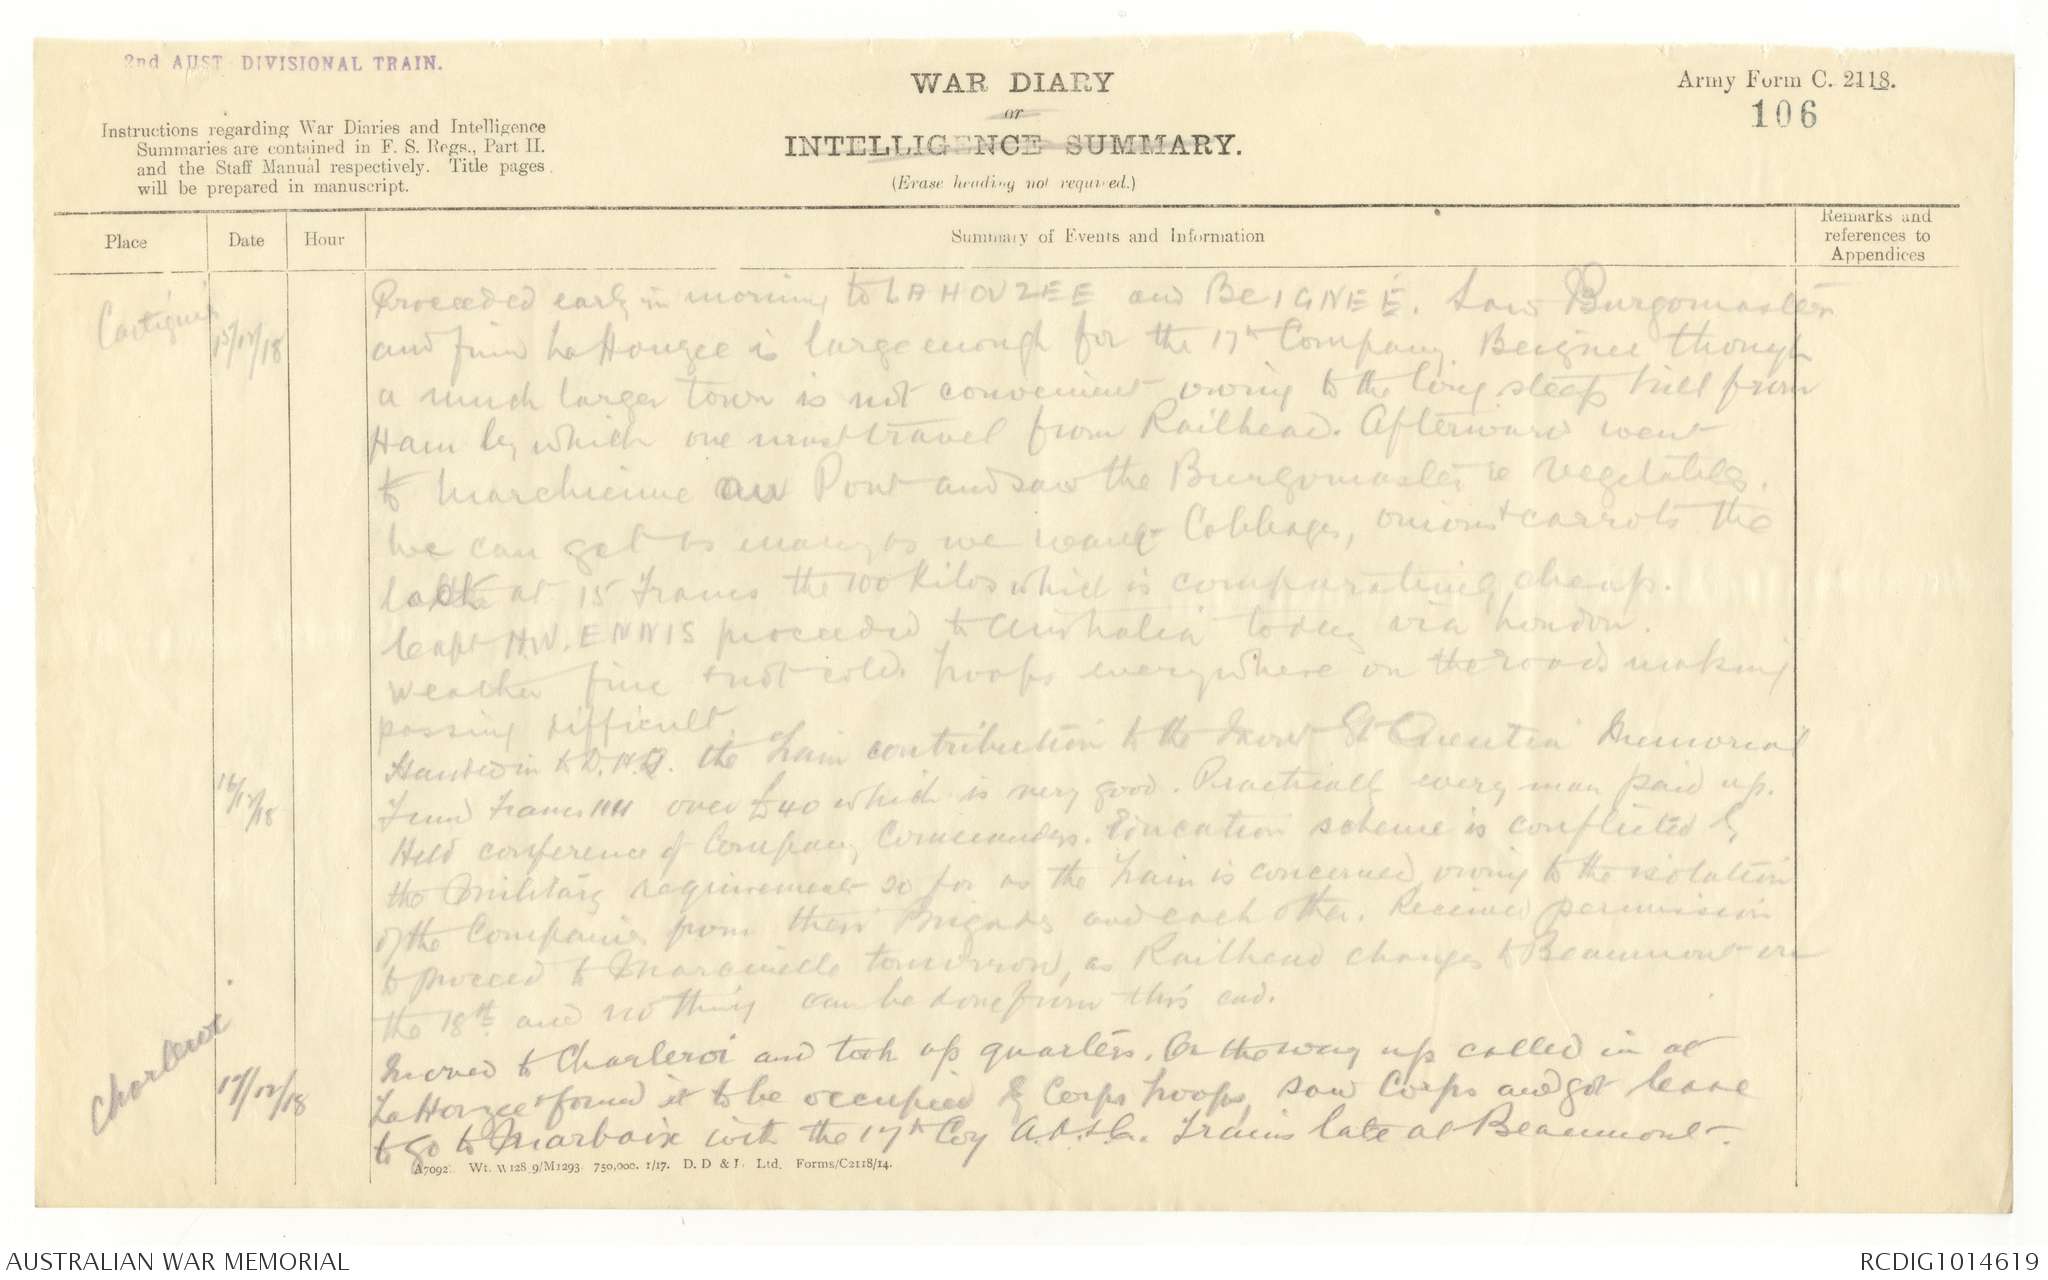 2nd AUST DIVISIONAL TRAIN.
WAR DIARY
or
INTELLIGENCE SUMMARY.
(Erase heading not required.)
Army Form C. 2118.
106
Instructions regarding War Diaries and Intelligence
Summaries are contained in F. S. Regs., Part II.
and the Staff Manual respectively. Title pages
will be prepared in manuscript.
Place
Date
Hour
Summary of Events and Information
Remarks and
references to
Appendices
15/12/18
Proceeded early in morning to LA HOUZEE and BEIGNEE. Saw Burgomaster
and find La Houzee is large enough for the 17th Company. Beignee though
a much larger town is not convenient owing to the long steep hill from
Ham by which one must travel from Railhead. Afterward went
to Marchienne au Pont and saw the Burgomaster re vegetables.
We can get as many as we want Cabbages, onions & carrots the
at 15 Francs the 100 Kilos which is comparatively cheap.
Capt H.W. ENNIS proceeded to Australia today via London.
Weather fine & not cold. Troops everywhere on the roads making
passing difficult.
16/12/18
Handed in to D.H.Q. the Train contribution to the Mont St Quentin Memorial
Fund Francs over £40 which is very good. Practically every man paid up.
Held conference of Company Commanders. Education scheme is conflicted by
the Military requirements so far as the Train is concerned owing to the isolation
of the Companies from their Brigades and each other. Received permission
to proceed to Marcinelle tomorrow, as Railhead changes to Beaumont on
the 18th and nothing can be done from this end.
Charleroi
17/12/18
Moved to Charleroi and took up quarters. On the way up called in at
La Houzee & found it to be occupied by Corps Troops, saw Corps and got leave
to go to Marbaix with the 17th Coy A.A.S.C. Trains late at Beaumont.
Wt. 750,000. 1/17. D. D & L. Ltd. Forms/C2118/14.
AUSTRALIAN WAR MEMORIAL
RCDIG1014619